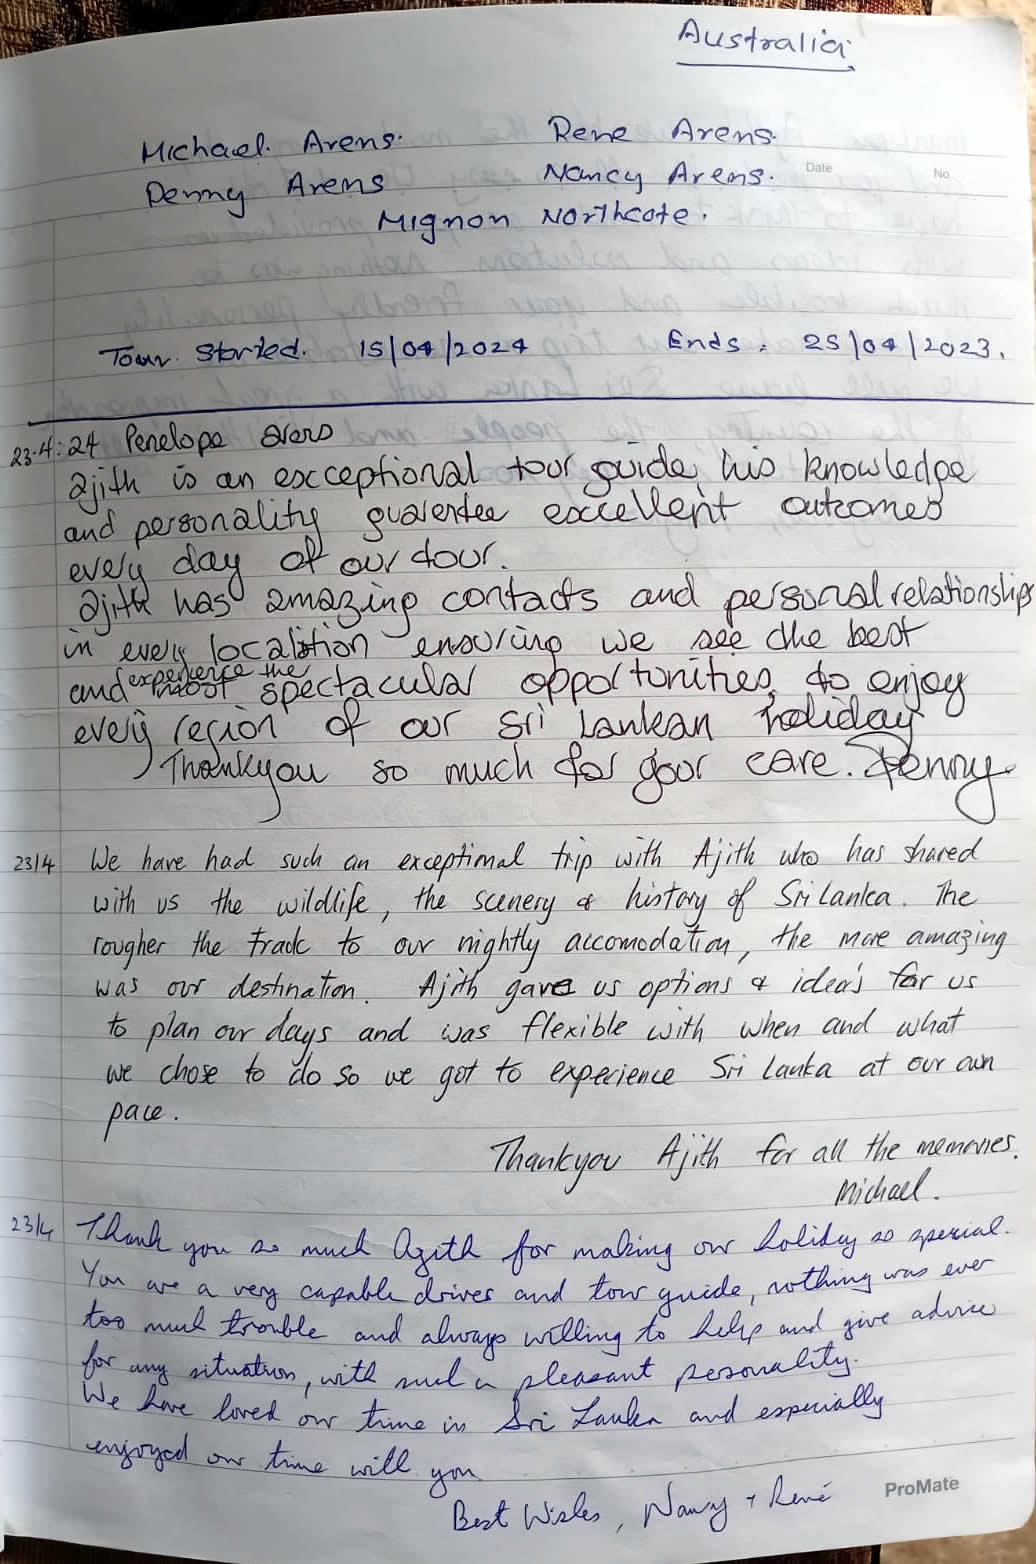 Australia
Michael. Arens. Rene Arens.
Penny Arens Nancy Arens. Date No.
Mignon Northcote.
Tour. Started. 15/04/2024 Ends : 25/04/2023.
23.4:24 Penelope
Ajith is an exceptional tour guide, his knowledge
and personality guarentee excellent outcomes
every day of our tour.
Ajith has amazing contacts and personal relationships
in every location ensuring we see the best
and experience the most spectacular opportunities, to enjoy
every region of our Sri Lankan holiday
Thankyou so much for your care. Penny
23/4 We have had such an exceptional trip with Ajith who has shared
with us the wildlife, the scenery & history of Sri Lanka. The
rougher the track to our nightly accomodation, the more amazing
was our destination. Ajith gave us options & idea's for us
to plan our days and was flexible with when and what
we chose to do so we got to experience Sri Lanka at our own
pace.
Thankyou Ajith for all the memories.
Michael.
23/4 Thank you so much Agith for making our holiday so special.
You are a very capable driver and tour guide, nothing was ever
too much trouble and always willing to help and give advice
for any situation, with such a pleasant personality.
We have loved our time in Sri Lanka and especially
enjoyed our time will you
Best Wishes, Nancy + René
ProMate